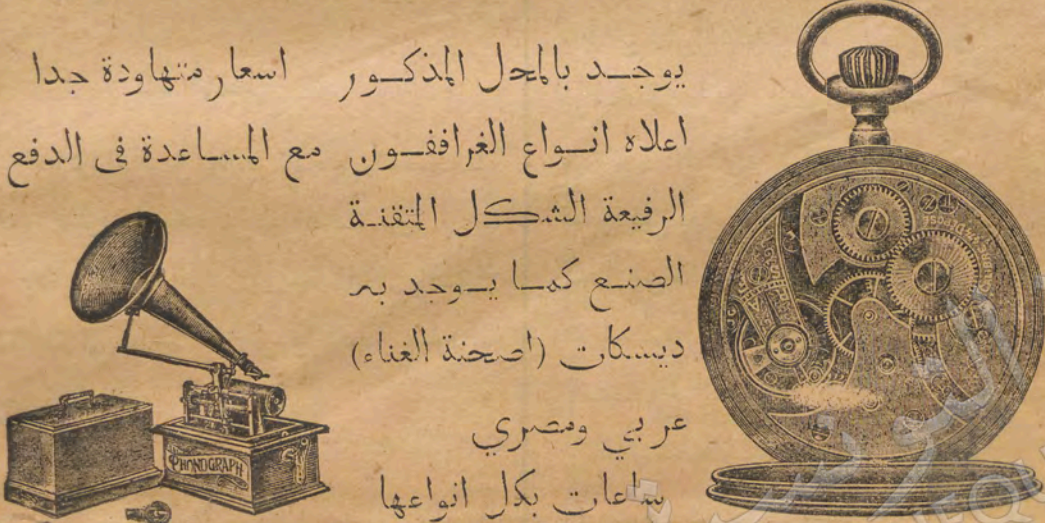 يوجد بالمحل المذكور
اعلاه انواع الغراففون
الرفيعة الشكل المتقنة
الصنع كما يوجد به
ديسكات (اصحنة الغناء)
عربي ومصري
ساعات بكل انواعها
اسعار متهاودة جدا
مع المساعدة في الدفع
PHONOGRAPH